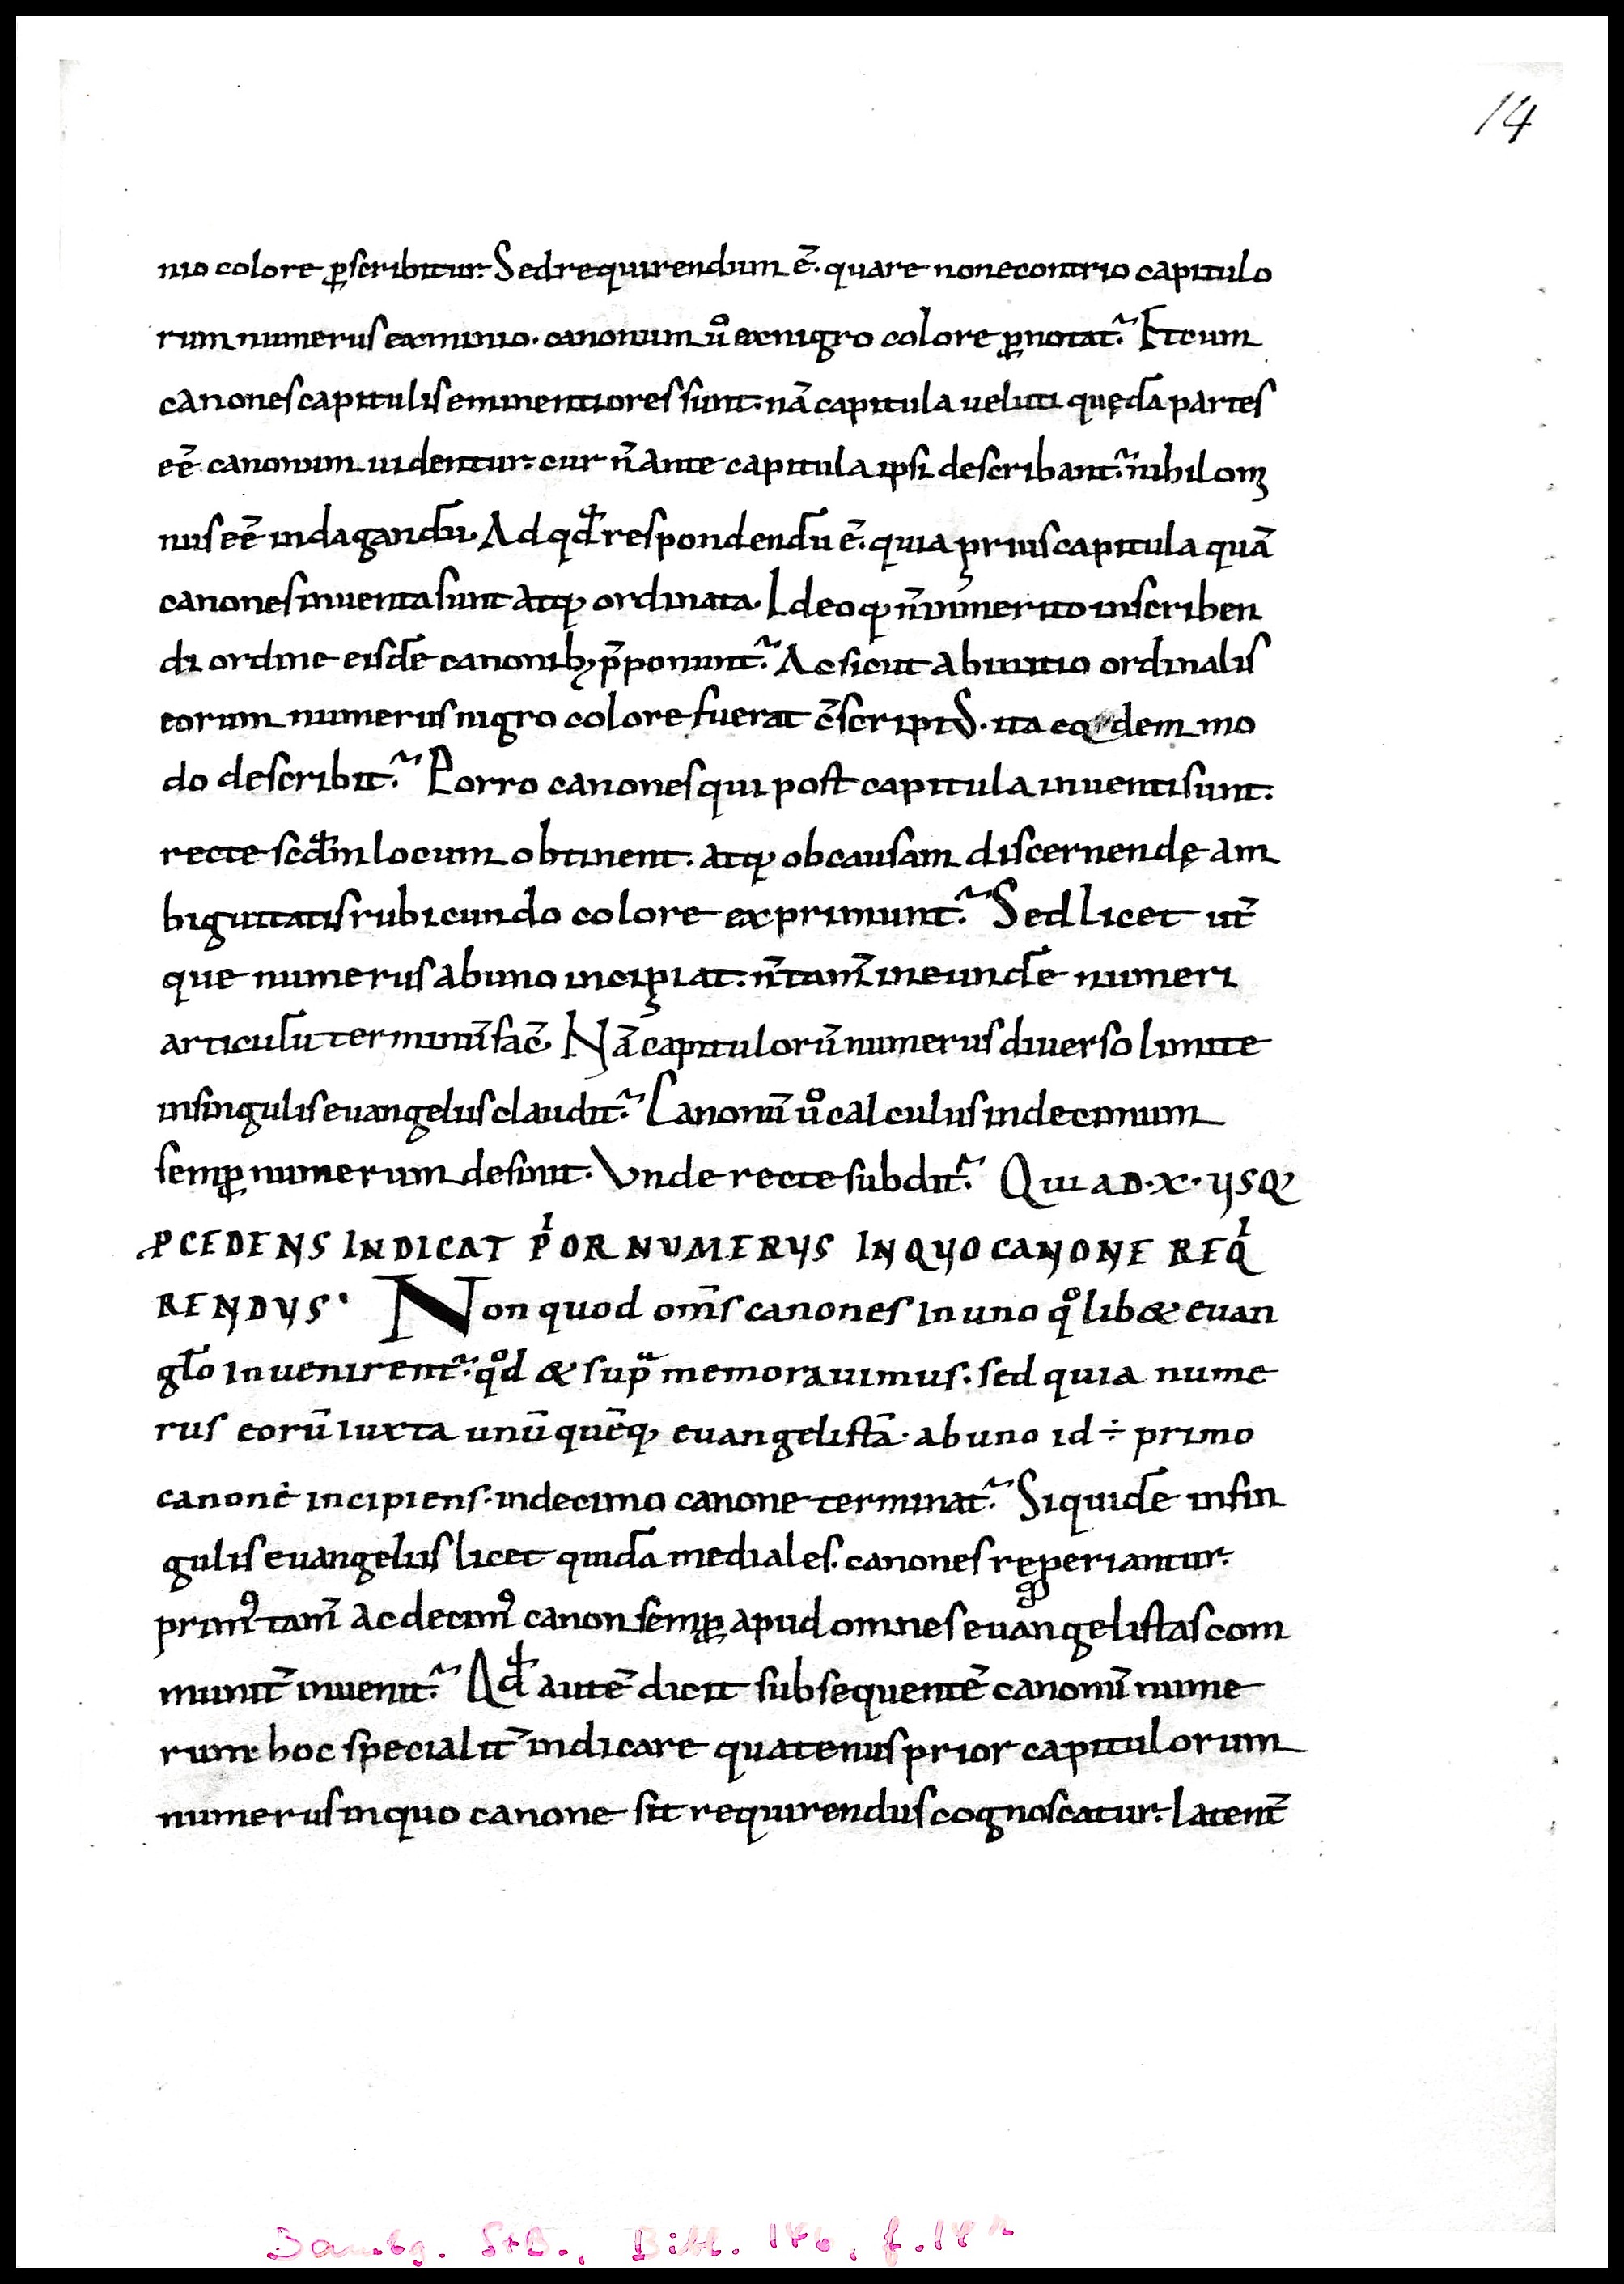 14
nio colore p̱scribitur. Sed requirendum ē. quare non econtrio capitulo
rum numerus ex minio. canonum ů ex nigro colore p̱notat᷑. Et cum
canones capitulis eminentiores sunt. nā capitula ueluti quędā partes
eē canonum uidentur. cur n̄ ante capitula ipsi describant᷑. nihilomi
nus eē indagandū. Ad qđ respondendū ē. quia prius capitula quā
canones inuenta sunt atq; ordinata. Ideoq; n̄ inmerito in scriben
di ordine eisdē canonib; p̄ponunt᷑. Ac sicut ab initio ordinalis
eorum numerus nigro colore fuerat c̄scriptus. ita eodem mo
do describit᷑. Porro canones qui post capitula inuenti sunt.
recte scđm locum obtinent. atq; ob causam discernendę am
biguitatis rubicundo colore exprimunt᷑. Sed licet ut̄
que numerus ab uno incipiat. n̄ tam̄ in eundē numeri
articulū terminū fac̄. Nā capitulorū numerus diuerso limite
in singulis euangeliis claudit᷑. Canonū ů calculus in decimum
semp̱ numerum desinit. Vnde recte subdit᷑. QUI AD . X . USQ;
P̱CEDENS INDICAT PͥOR NUMERUS IN QUO CANONE REQͥ
RENDUS. Non quod om̄s canones in uno qͦlib& euan
gł̄o inuenirent᷑. qͦd & sup̃ memorauimus. sed quia nume
rus eorū iuxta unū quēq; euangelistā. ab uno id ÷ primo
canone incipiens. in decimo canone terminat᷑. Siquidē in sin
gulis euangeliis licet quidā mediales. canones reperiantur.
primꝰ tam̄ ac decimꝰ canon semp̱ apud omnes euangelistas com
munit̄ inuenit᷑. Qđ autē dicit subsequentē canonū nume
rum. hoc specialit̄ indicare quatenus prior capitulorum
numerus in quo canone sit requirendus cognoscatur. latent̄
Bambg. StB., Bibl. 146, f. 14 r